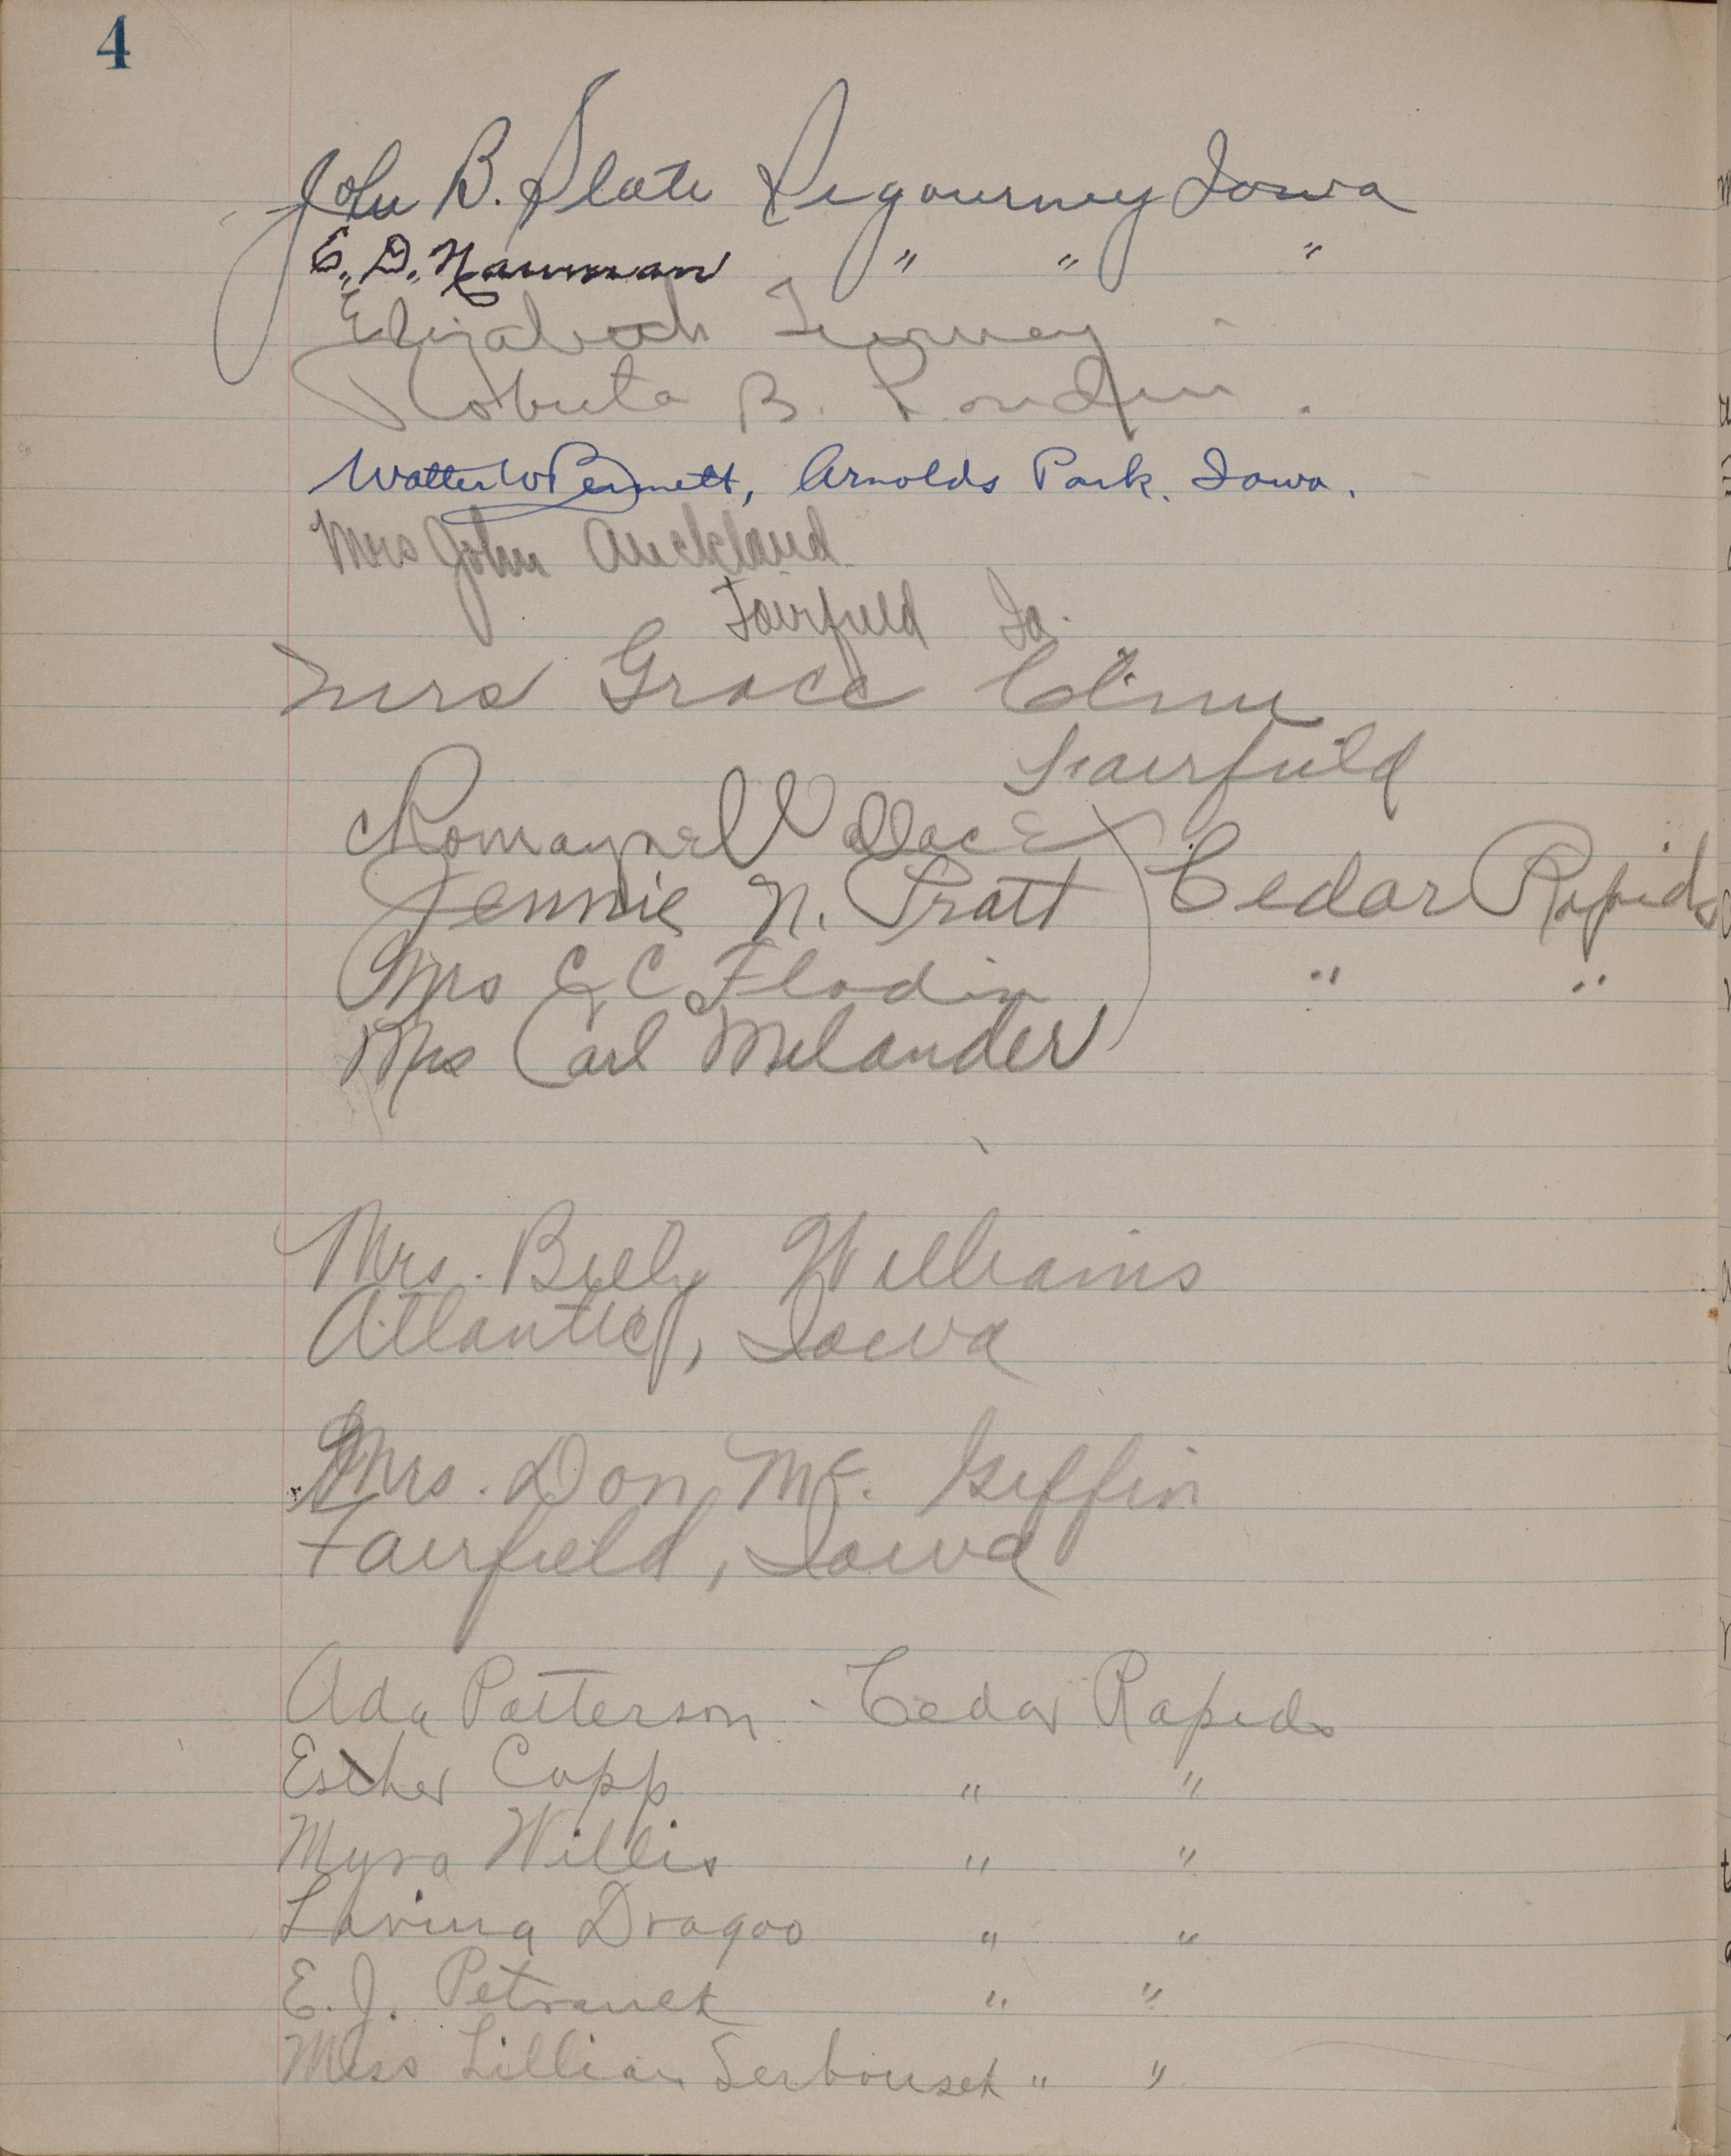 4
John B. Slate Sigourney Iowa
E. D. Nauman " " "
Elizabeth
Roberta B.
Walter W Bennett, Arnolds Park, Iowa.
Mrs John Auckland
Fairfield Ia.
Mrs Grace
Fairfield
Romayne Wallace
Jennie N. Pratt Cedar Rapids
Mrs C C Flodin " "
Mrs Carl Melander
Mrs. Billy Williams
Atlantic, Iowa
Mrs. Don Mc. Giffin
Fairfield, Iowa
Ada Patterson - Cedar Rapids
Esther Cupp " "
Myra Willis " "
Lavina Dragoo " "
E. J. Petranek " "
Miss Lillian Serbousek " "